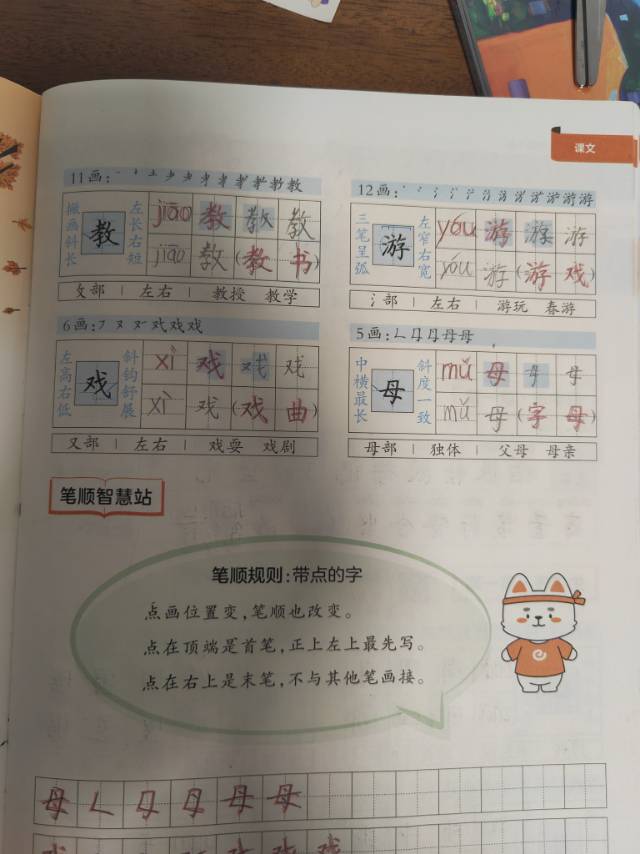 课文
11画:
撇画斜长
教
左长右短
jiāo 教 教 教
jiāo 教 (教 书)
攵部 | 左右 | 教授 教学
12画:
三笔呈弧
游
左窄右宽
yóu 游 游 游
yóu 游 (游 戏)
氵部 | 左右 | 游玩 春游
6画:
左高右低
戏
斜钩舒展
xì 戏 戏 戏
xì 戏 (戏 曲)
又部 | 左右 | 戏耍 戏剧
5画:
中横最长
母
斜度一致
mǔ 母 母 母
mǔ 母 (字 母)
母部 | 独体 | 父母 母亲
笔顺智慧站
笔顺规则:带点的字
点画位置变,笔顺也改变。
点在顶端是首笔,正上左上最先写。
点在右上是末笔,不与其他笔画接。
母 𠃊 母 母